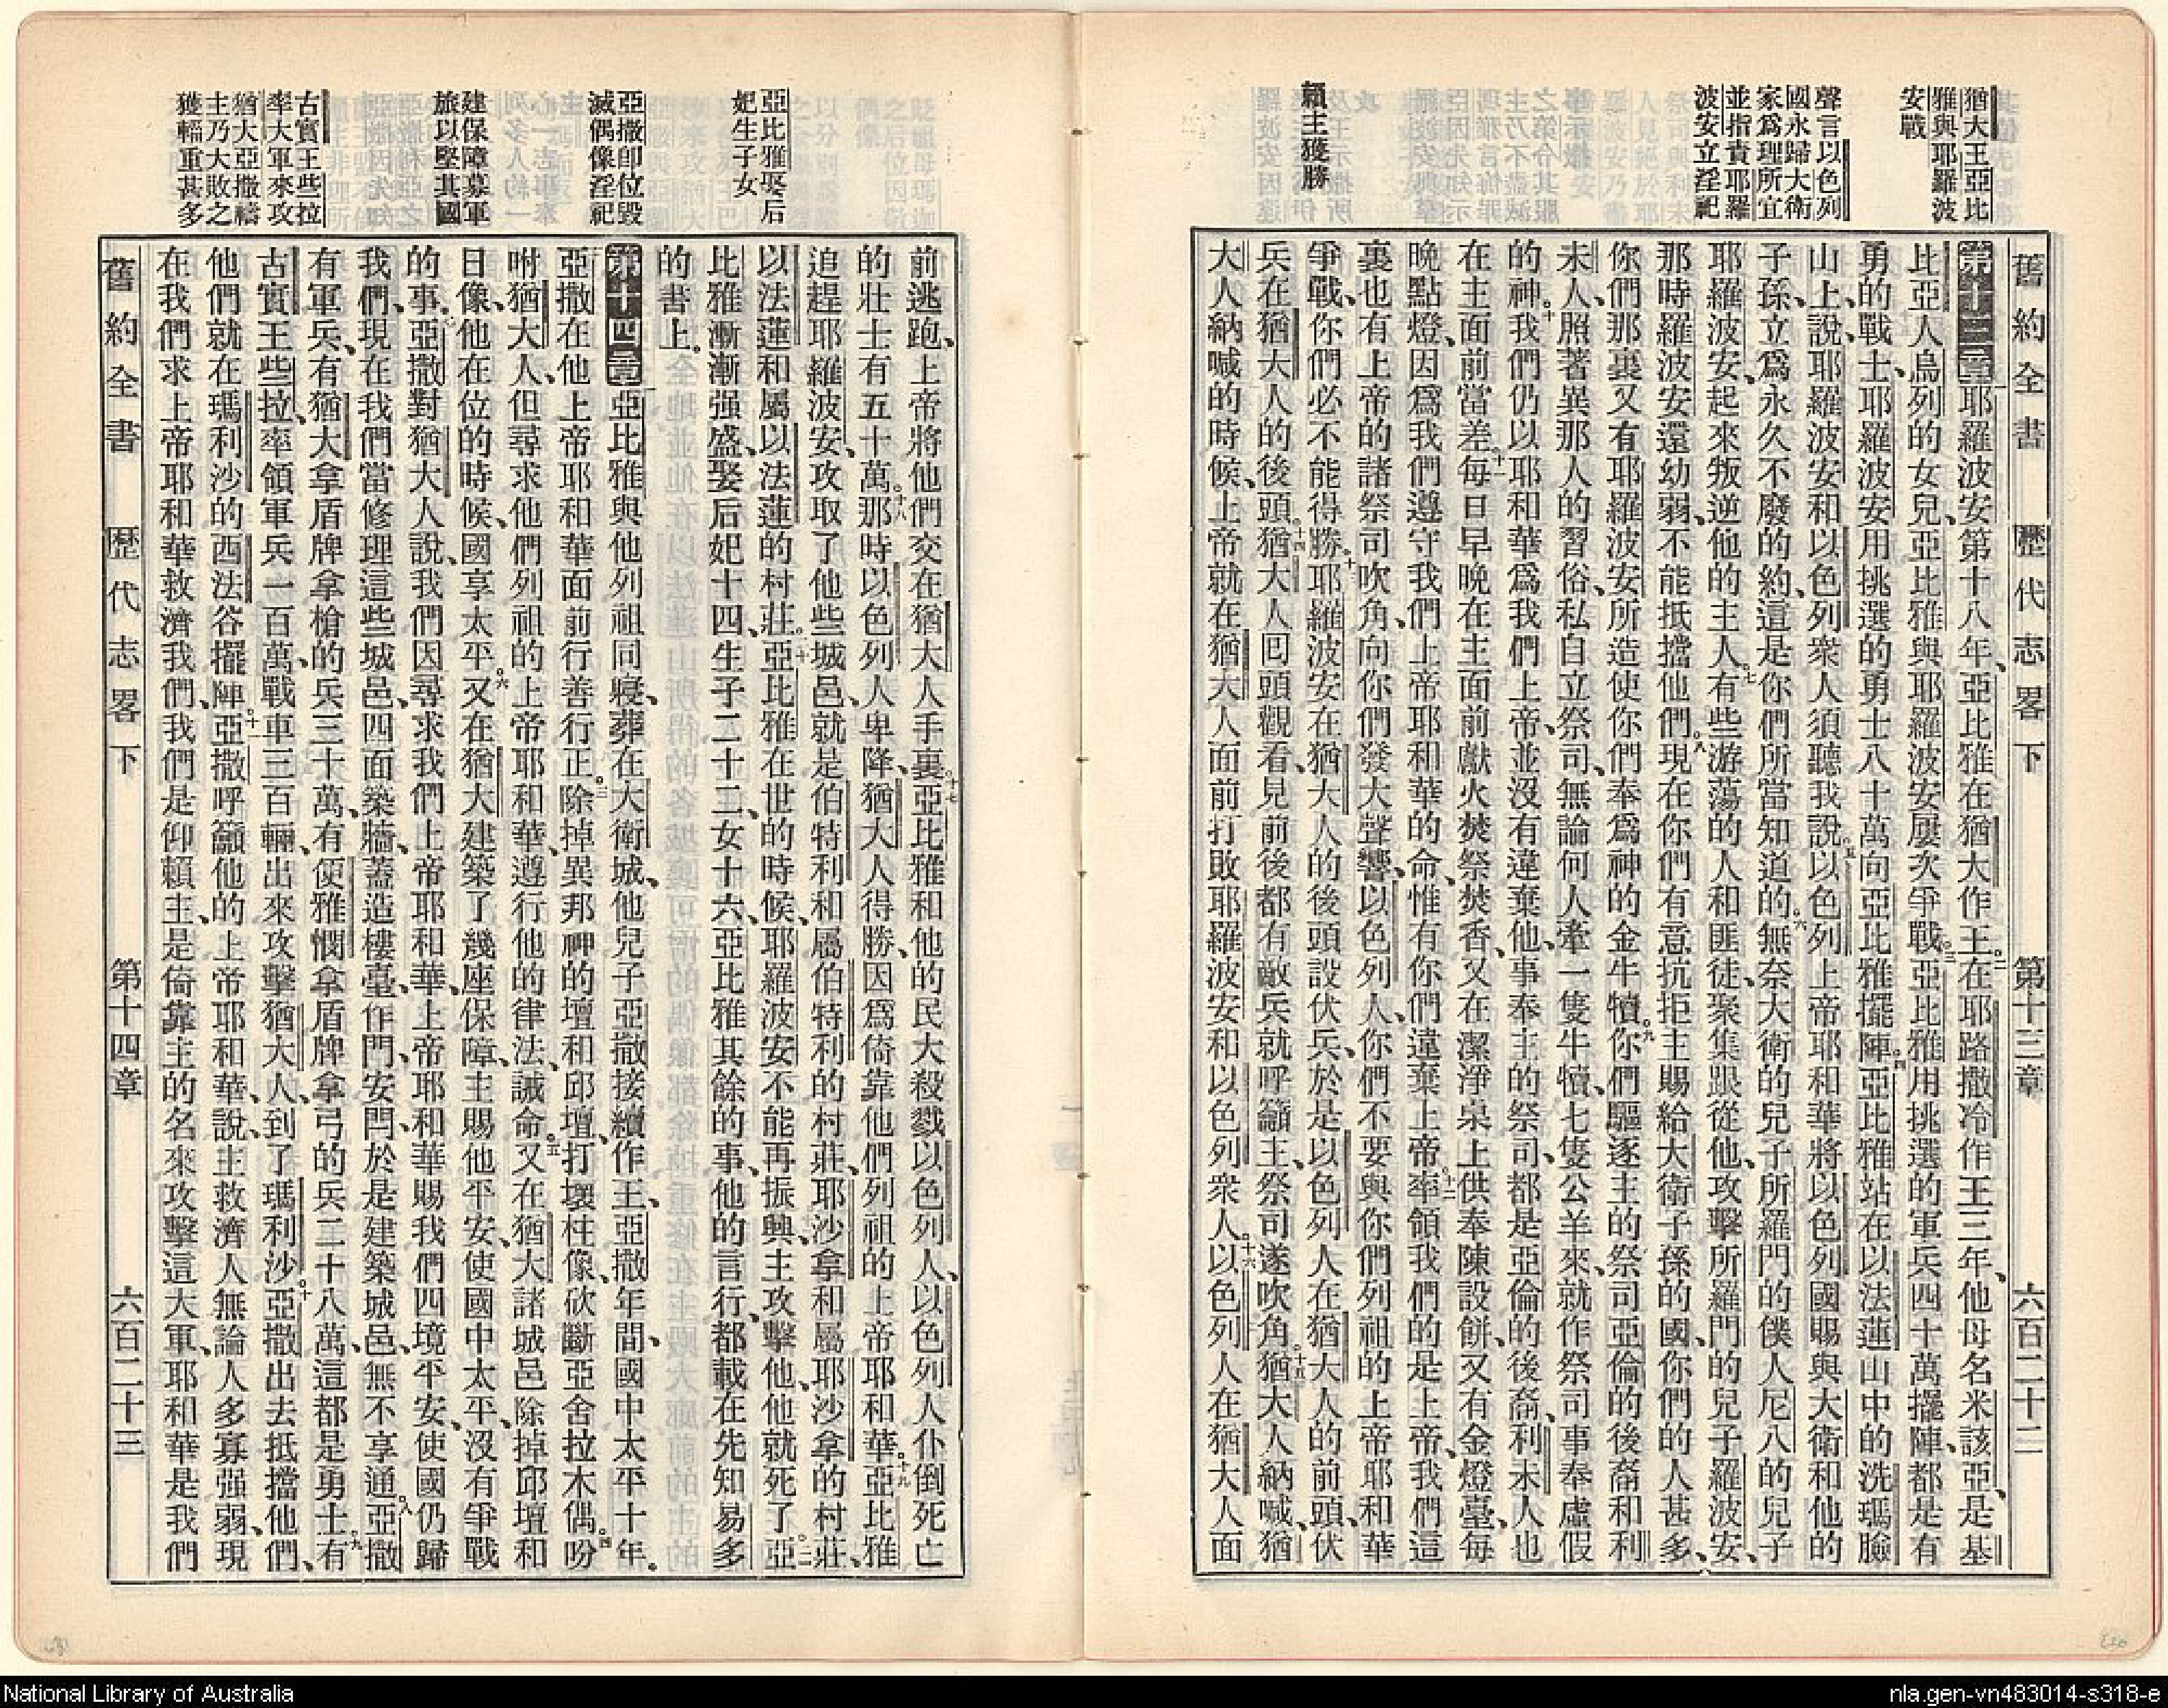 舊約全書 歷代志畧下 第十三章 六百二十二
猶大王亞比
雅與耶羅波
安戰
聲言以色列
國永歸大衛
家爲理所宜
並指責耶羅
波安立淫祀
賴主獲勝
第十三章耶羅波安第十八年、亞比雅在猶大作王。二在耶路撒冷作王三年、他母名米該亞、是基
比亞人烏列的女兒、亞比雅與耶羅波安屢次爭戰。三亞比雅用挑選的軍兵四十萬擺陣、都是有
勇的戰士、耶羅波安用挑選的勇士八十萬向亞比雅擺陣。四亞比雅站在以法蓮山中的洗瑪臉
山上、說、耶羅波安和以色列衆人須聽我說。五以色列上帝耶和華將以色列國賜與大衛和他的
子孫、立爲永久不廢的約、這是你們所當知道的。六無奈大衛的兒子所羅門的僕人尼八的兒子
耶羅波安、起來叛逆他的主人。七有些游蕩的人和匪徒、聚集跟從他、攻擊所羅門的兒子羅波安、
那時羅波安還幼弱、不能抵擋他們。八現在你們有意抗拒主賜給大衛子孫的國、你們的人甚多、
你們那裏又有耶羅波安所造使你們奉爲神的金牛犢。九你們驅逐主的祭司亞倫的後裔和利
未人、照著異那人的習俗、私自立祭司、無論何人牽一隻牛犢、七隻公羊來、就作祭司事奉虛假
的神。十我們仍以耶和華爲我們上帝、並沒有違棄他、事奉主的祭司、都是亞倫的後裔、利未人也
在主面前當差。十一每日早晚在主面前獻火焚祭焚香、又在潔淨桌上供奉陳設餅、又有金燈臺、每
晚點燈、因爲我們遵守我們上帝耶和華的命、惟有你們違棄上帝。十二率領我們的是上帝、我們這
裏也有上帝的諸祭司吹角、向你們發大聲響、以色列人、你們不要與你們列祖的上帝耶和華
爭戰、你們必不能得勝。十三耶羅波安在猶大人的後頭設伏兵、於是以色列人在猶大人的前頭、伏
兵在猶大人的後頭。十四猶大人囘頭觀看、見前後都有敵兵就呼籲主、祭司遂吹角。十五猶大人納喊、猶
大人納喊的時候、上帝就在猶大人面前打敗耶羅波安和以色列衆人。十六以色列人在猶大人面
亞比雅娶后
妃生子女
亞撒卽位毀
滅偶像淫祀
建保障募軍
旅以堅其國
古實王些拉
率大軍來攻
猶大亞撒禱
主乃大敗之
獲輜重甚多
前逃跑、上帝將他們交在猶大人手裏。十七亞比雅和他的民大殺戮以色列人、以色列人仆倒死亡
的壯士有五十萬。十八那時以色列人卑降、猶大人得勝、因爲倚靠他們列祖的上帝耶和華。十九亞比雅
追趕耶羅波安、攻取了他些城邑、就是伯特利和屬伯特利的村莊、耶沙拿和屬耶沙拿的村莊、
以法蓮和屬以法蓮的村莊。二十亞比雅在世的時候、耶羅波安不能再振興、主攻擊他、他就死了。二一亞
比雅漸漸强盛、娶后妃十四、生子二十二、女十六、亞比雅其餘的事、他的言行、都載在先知易多
的書上。
第十四章亞比雅與他列祖同寢、葬在大衛城、他兒子亞撒接續作王、亞撒年間、國中太平十年。
亞撒在他上帝耶和華面前行善行正。三除掉異邦神的壇和邱壇、打壞柱像、砍斷亞舍拉木偶。四吩
咐猶大人、但尋求他們列祖的上帝耶和華、遵行他的律法、誡命。五又在猶大諸城邑除掉邱壇和
日像、他在位的時候、國享太平。六又在猶大建築了幾座保障、主賜他平安、使國中太平、沒有爭戰
的事。七亞撒對猶大人說、我們因尋求我們上帝耶和華、上帝耶和華賜我們四境平安、使國仍歸
我們、現在我們當修理這些城邑、四面築牆、蓋造樓臺、作門、安閂、於是建築城邑、無不享通。八亞撒
有軍兵、有猶大拿盾牌拿槍的兵三十萬、有便雅憫拿盾牌拿弓的兵二十八萬、這都是勇士。九有
古實王些拉、率領軍兵一百萬、戰車三百輛、出來攻擊猶大人、到了瑪利沙。十亞撒出去抵擋他們、
他們就在瑪利沙的西法谷擺陣。十一亞撒呼籲他的上帝耶和華、說、主救濟人無論人多寡强弱、現
在我們求上帝耶和華救濟我們、我們是仰賴主、是倚靠主的名來攻擊這大軍、耶和華是我們
舊約全書 歷代志畧下 第十四章 六百二十三
National Library of Australia
nla.gen-vn483014-s318-e